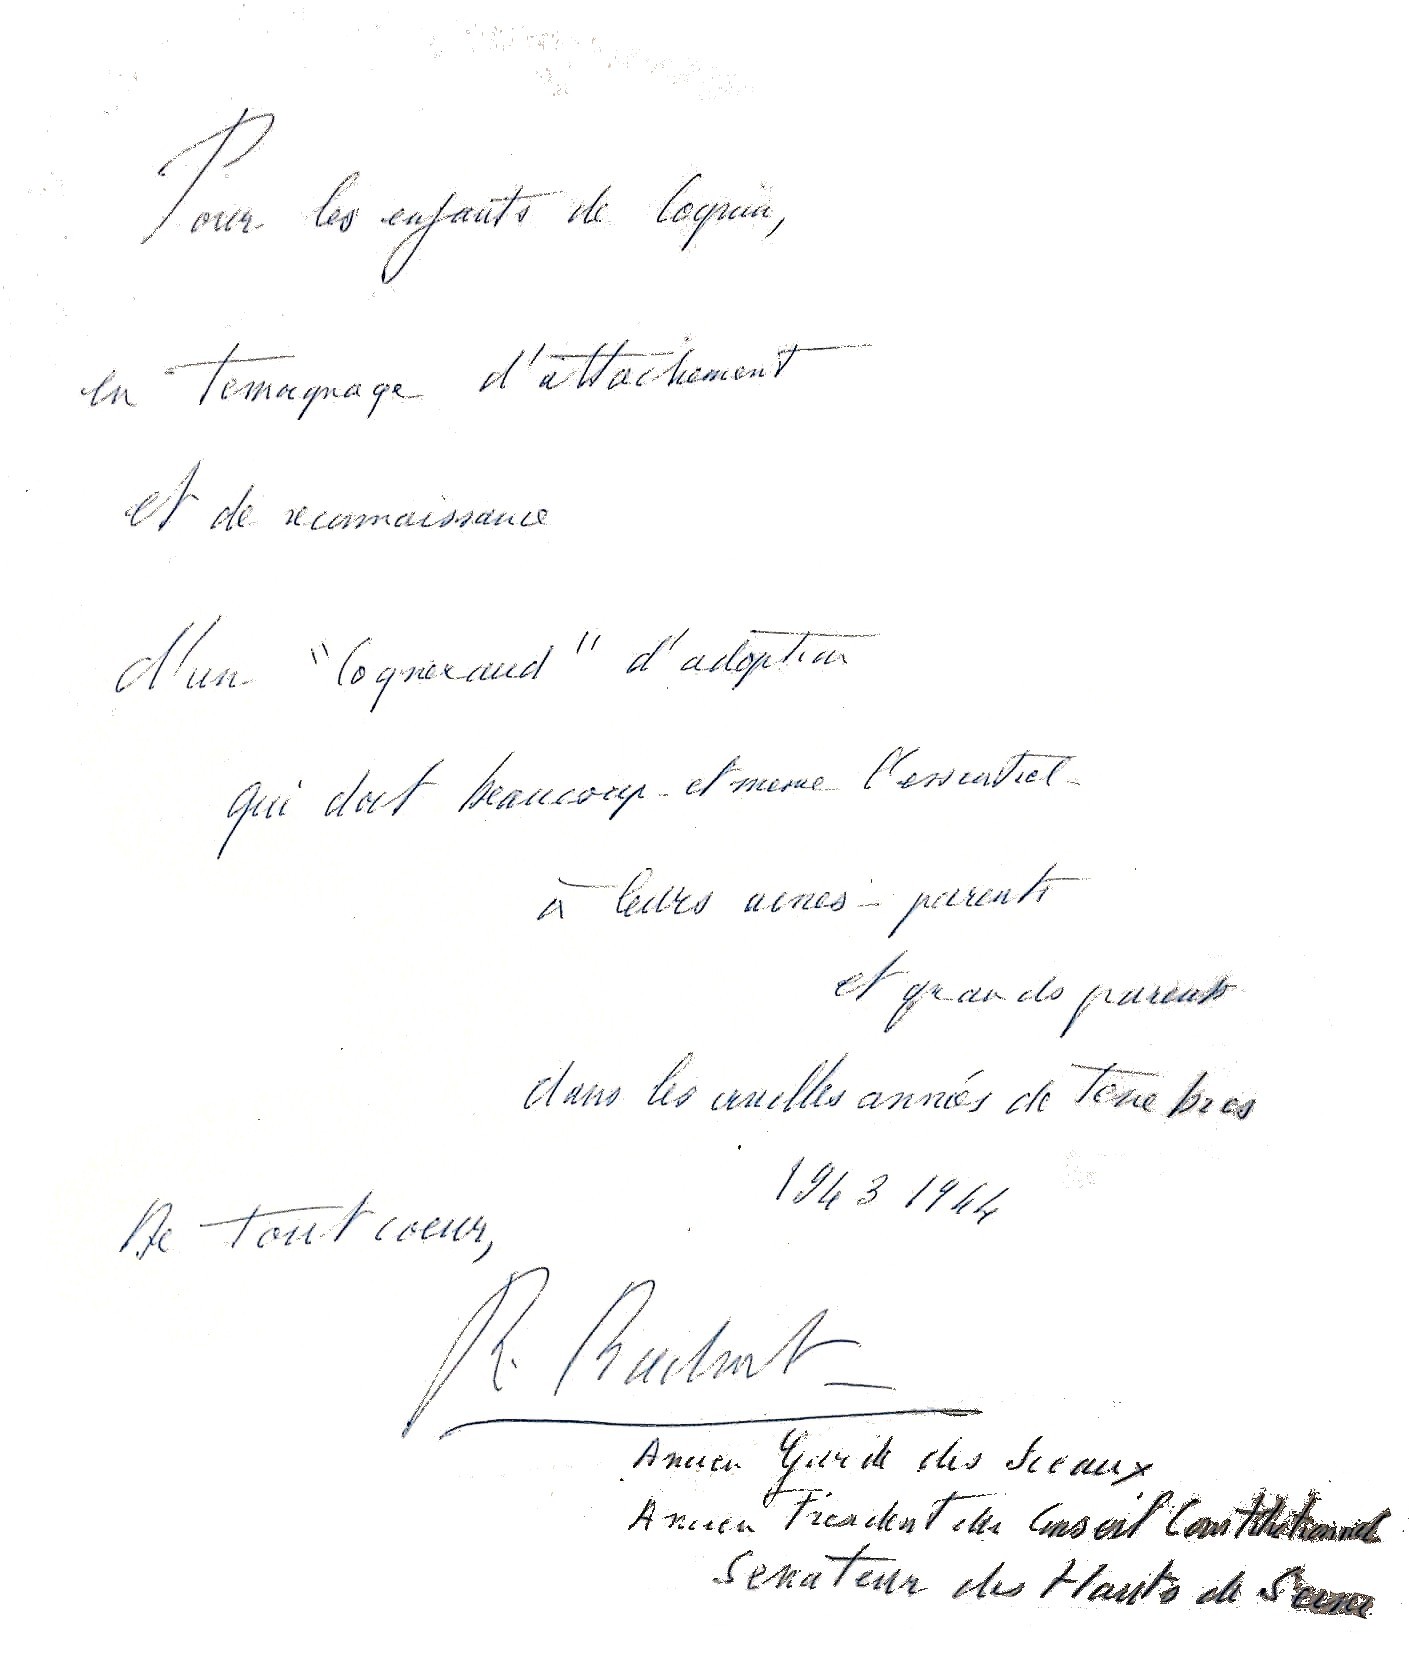 Pour les enfants de Cognin,
en témoignage d'attachement
et de reconnaissance
d'un "Cognéraud" d'adoption
qui doit beaucoup - et même l'essentiel -
à leurs aînés - parents
et grands parents
dans les cruelles années de ténèbres
1943 1944
De tout coeur,
R. Badinter
Ancien Garde des Sceaux
Ancien Président du Conseil Constitutionnel
Sénateur des Hauts de Seine